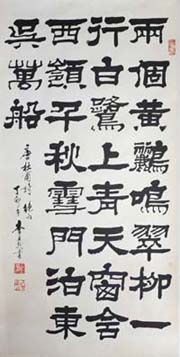 兩個黃鸝鳴翠柳一
行白鷺上青天窗含
西嶺千秋雪門泊東
吳萬船
唐杜甫詩
丁卯年